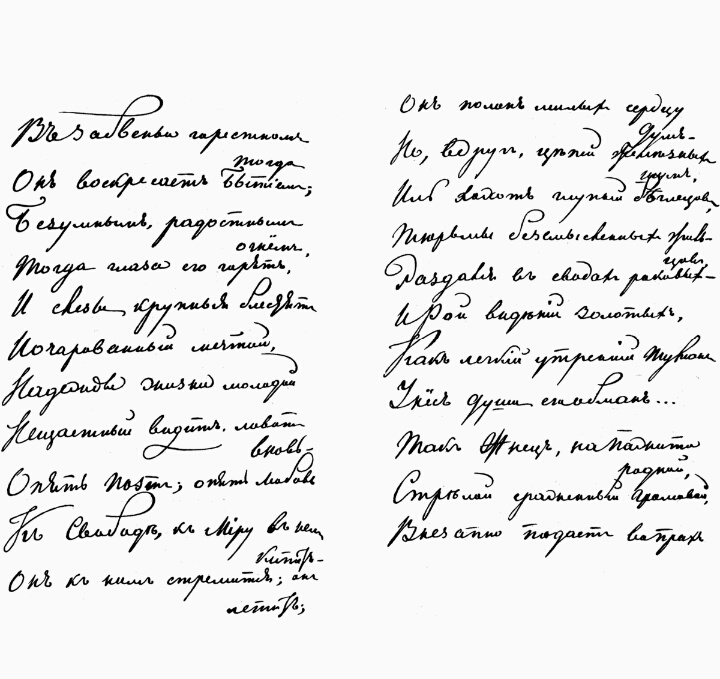 Въ забвеньи горестномъ
тогда
Онъ воскресаетъ бытіемъ;
Безумнымъ, радостнымъ
огнёмъ,
Тогда глаза его горѣтъ,
И слезы крупныя блестятъ
И очарованный мечтой,
Надежды жизни молодой
Нещастный видитъ, ловитъ
вновь-
Опять поэтъ; опять любовь
Къ Свободѣ, къ Міру въ немъ
кипитъ-
Онъ къ нимъ стремится; онъ
летитъ;
Онъ полонъ милыхъ сердцу
думъ-
Но, вдругъ, цѣпей желѣзныхъ
шумъ,
Иль хохотъ глупый бѣглецовъ,
Тюрьмы безсмысленныхъ жиль-
цовъ,
Раздался въ сводахъ роковыхъ-
И рой видѣній золотыхъ,
Какъ легкій утренній туманъ
Унёсъ души его обманъ...
Такъ Жнецъ, на пажити
родной,
Стрѣлой сраженный громовой,
Внезапно подаетъ во прахъ